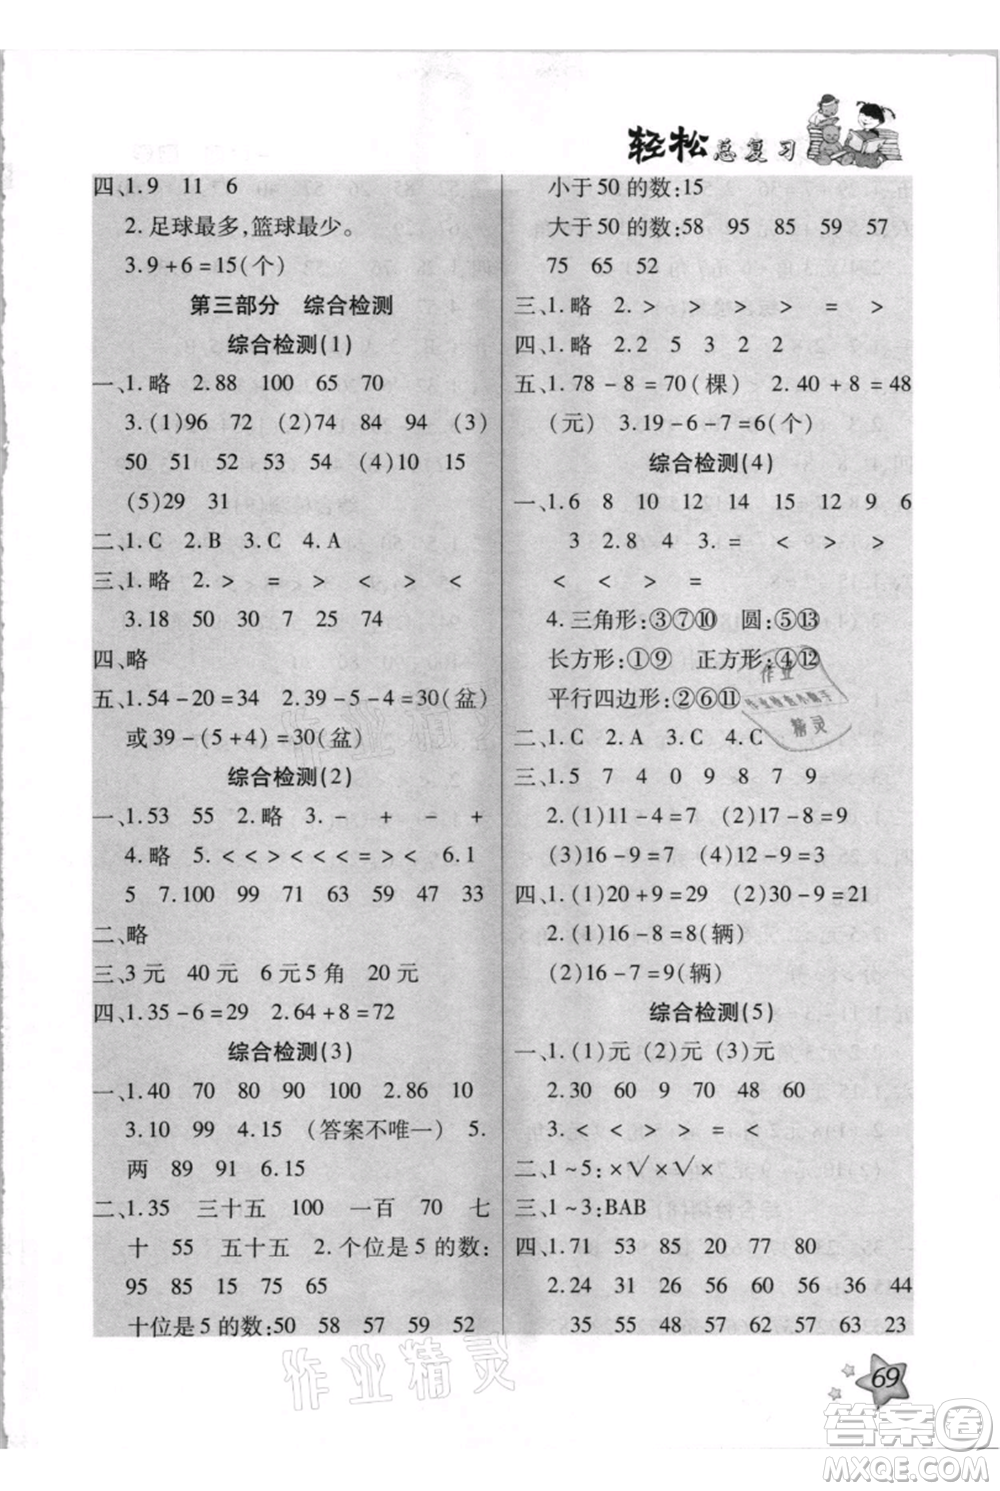 轻松总复习
四、1.9 11 6
2.足球最多,篮球最少。
3.9+6=15(个)
第三部分 综合检测
综合检测(1)
一、1.略 2.88 100 65 70
3.(1)96 72 (2)74 84 94 (3)
50 51 52 53 54 (4)10 15
(5)29 31
二、1.C 2.B 3.C 4.A
三、1.略 2.> > = > < > <
3.18 50 30 7 25 74
四、略
五、1.54-20=34 2.39-5-4=30(盆)
或39-(5+4)=30(盆)
综合检测(2)
一、1.53 55 2.略 3.- + - +
4.略 5.< < > < < < = > < 6.1
5 7.100 99 71 63 59 54 33
二、略
三、3元 40元 6元5角 20元
四、1.35-6=29 2.64+8=72
综合检测(3)
一、1.40 70 80 90 100 2.86 10
3.10 99 4.15 (答案不唯一) 5.
两 89 91 6.15
二、1.35 三十五 100 一百 70 七
十 55 五十五 2.个位是5的数:
95 85 15 75 65
十位是5的数:50 58 57 59 52
小于50的数:15
大于50的数:58 95 85 59 57
75 65 52
三、1.略 2.< > > > > = >
四、1.略 2.2 5 3 2 2
五、1.78-8=70(棵) 2.40+8=48
(元) 3.19-6-7=6(个)
综合检测(4)
一、1.6 8 10 12 14 15 12 9 6
3 2.8 4 3.= < > >
< < > > =
4.三角形:③⑦⑩ 圆:⑤⑬
长方形:①⑨ 正方形:④⑫
平行四边形:②⑥⑪
二、1.C 2.A 3.C 4.C
三、1.5 7 4 0 9 8 7 9
2.(1)11-4=7 (2)17-8=9
(3)16-9=7 (4)12-9=3
四、1.(1)20+9=29 (2)30-9=21
2.(1)16-8=8(辆)
(2)16-7=9(辆)
综合检测(5)
一、1.(1)元 (2)角 (3)元
2.30 60 9 70 48 60
3.< < > > = <
二、1~5:×√×√×
三、1~3:BAB
四、1.71 53 85 20 77 80
2.24 31 26 56 56 36 44
35 55 48 57 57 63 23
69
作业精灵
作业
精灵
答案卷
MXQE.COM